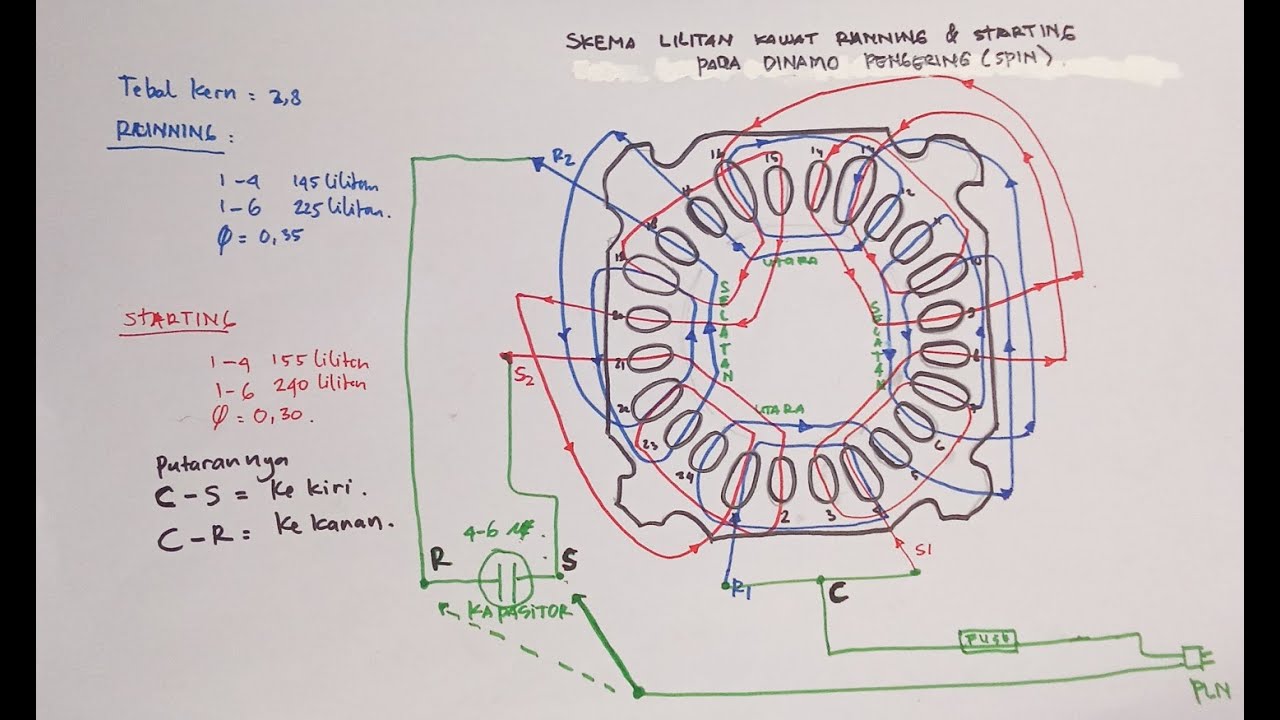 SKEMA LILITAN KAWAT RUNNING & STARTING
PADA DINAMO PENGERING (SPIN).
Tebal kern : 2,8
RUNNING :
1-4 145 lilitan
1-6 225 lilitan.
φ = 0,35
STARTING
1-4 155 lilitan
1-6 240 lilitan
φ = 0,30.
Putarannya
C-S = Ke kiri.
C-R = Ke kanan.
R2
16
15
14
13
12
11
10
9
8
7
6
5
4
3
2
24
23
22
21
20
19
18
17
UTARA
SELATAN
SELATAN
UTARA
S2
S1
R1
C
4-6 µF
R
S
KAPASITOR
FUSE
PLN